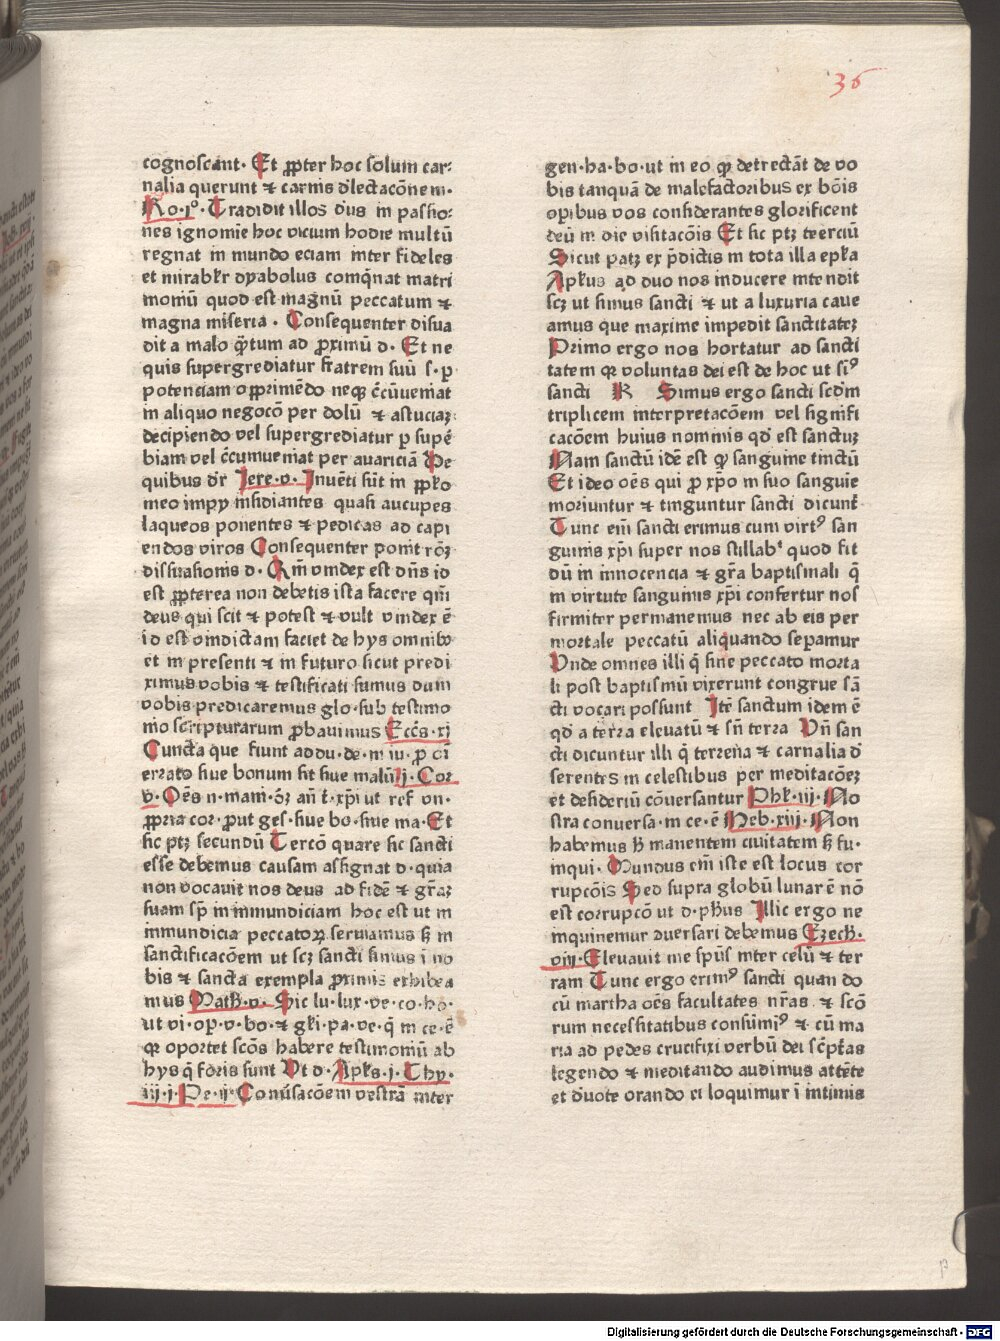 36
cognoscant. Et ꝓpter hoc solum car:
nalia querunt ⁊ carnis dʼlectacōnem.
Ro.1°. Tradidit illos dʼus in passio:
nes ignomie hoc vicium hodie multū
regnat in mundo eciam inter fideles
et mirablʼr dyabolus comq̄nat matri
moniū quod est magnū peccatum ⁊
magna miseria . Consequenter disua
dit a malo q̄tum ad ꝓximū d. Et ne
quis supergrediatur fratrem suū s.p
potenciam opprimēdo neqꝫ c̄cūueniat
in aliquo negocō per dolū ⁊ astuciaꝫ
decipiendo vel supergrediatur p supē
biam vel c̄cumueniat per avariciā De
quibus dʼr Jere.v. Inuēti sūt in ppło
meo impij insidiantes quasi aucupes
laqueos ponentes ⁊ pedicas ad capi
endos viros Consequenter ponit rōꝫ
dissuasionis d. Qm̄ vindex est dn̄s id
est ꝓpterea non debetis ista facere qm̄
deus qui scit ⁊ potest ⁊ vult vindex ē
id est vindictam faciet de hys omnibꝰ
et in presenti ⁊ in futuro sicut predi
ximus vobis ⁊ testificati sumus dum
vobis predicaremus glo.sub testimo
nio scripturarum ꝓbauimus Eccs̄.xi
Cuncta que fiunt addu.de.in iu.ꝓ oī
errato siue bonum sit siue malū ij.Cor
v. Oēs n.mani.ōꝫ an̄ t.xp̄i ut ref̄ vn.
ꝓpria cor.ꝓut ges.siue bo.siue ma.Et
sic ptꝫ secundū Tercō quare sic sancti
esse debemus causam assignat d.quia
non vocauit nos deus ad fidē ⁊ gr̄aꝫ
suam sp̄ in inmundiciam hoc est ut in
inmundicia peccatoꝝ seruiamus sꝫ in
sanctificacōem ut scꝫ sancti simus ī no
bis ⁊ sancta exempla ꝓximis exhibea
mus Math.v. Sic lu.lux.ve.co.ho.
ut vi.op.v.bo.⁊ głi.pa.ve.q̄ in ce.ē
qꝫ oportet scōs habere testimoniū ab
hys q̄ foris sunt Ut d.Apłs.j.Thy.
iij.j.Pe.ij.Conūsacōem vestrā inter
gen.ha.bo.ut in eo qꝫ detrectāt de vo
bis tanquā de malefactoribus ex bōis
opibus vos considerantes glorificent
deū in die visitacōis Et sic ptꝫ terciū
Sicut patꝫ ex p̄dictis in tota illa epła
Apłus ad duo nos inducere intendit
scꝫ ut simus sancti ⁊ ut a luxuria caue
amus que maxime impedit sanctitateꝫ
Primo ergo nos hortatur ad sancti
tatem qꝫ voluntas dei est de hoc ut siꝰ
sancti R Simus ergo sancti scdm̄
triplicem interpretacōem vel signifi
cacōem huius nominis qd̓ est sanctuꝫ
Nam sanctū idē est qꝫ sanguine tinctū
Et ideo oēs qui ꝓ xp̄o in suo sanguie
moriuntur ⁊ tinguntur sancti dicunt̄
Tunc em̄ sancti erimus cum virtꝰ san
guinis xp̄i super nos stillabʼ quod fit
dū in innocencia ⁊ gr̄a baptismali q̄
in virtute sanguinis xp̄i confertur nos
firmiter permanemus nec ab eis per
mortale peccatū aliquando sepamur
Unde omnes illi q̄ sine peccato morta
li post baptismū vixerunt congrue sā
cti vocari possunt Itē sanctum idem ē
qd̓ a terra eleuatū ⁊ sn̄ terra Un̄ san
cti dicuntur illi q̄ terrena ⁊ carnalia dʼ
serentes in celestibus per meditacōeꝫ
et desideriū cōuersantur Phł.iij.No
stra conuersa.in ce.ē Heb.xiij.Non
habemus h̄ manentem ciuitatem sꝫ fu.
inqui. Mundus em̄ iste est locus cor
rupcōis Sed supra globū lunarē nō
est corrupcō ut d.pħus Illic ergo ne
inquinemur auersari debemus Ezech.
viij.Eleuauit me spūs inter celū ⁊ ter
ram Tunc ergo erimꝰ sancti quando
cū martha oēs facultates nr̄as ⁊ scō
rum necessitatibus consūmiꝰ ⁊ cū ma
ria ad pedes crucifixi verbū dei sc̄ptas
legendo ⁊ meditando audimus attēte
et dʼuote orando ei loquimur ī intimis
Digitalisierung gefördert durch die Deutsche Forschungsgemeinschaft - DFG